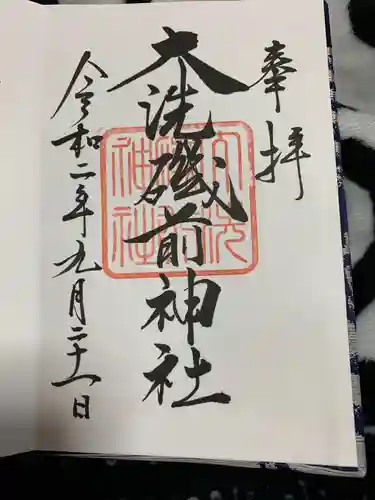 奉拝
大洗磯前神社
大洗磯前神社
令和二年九月二十一日